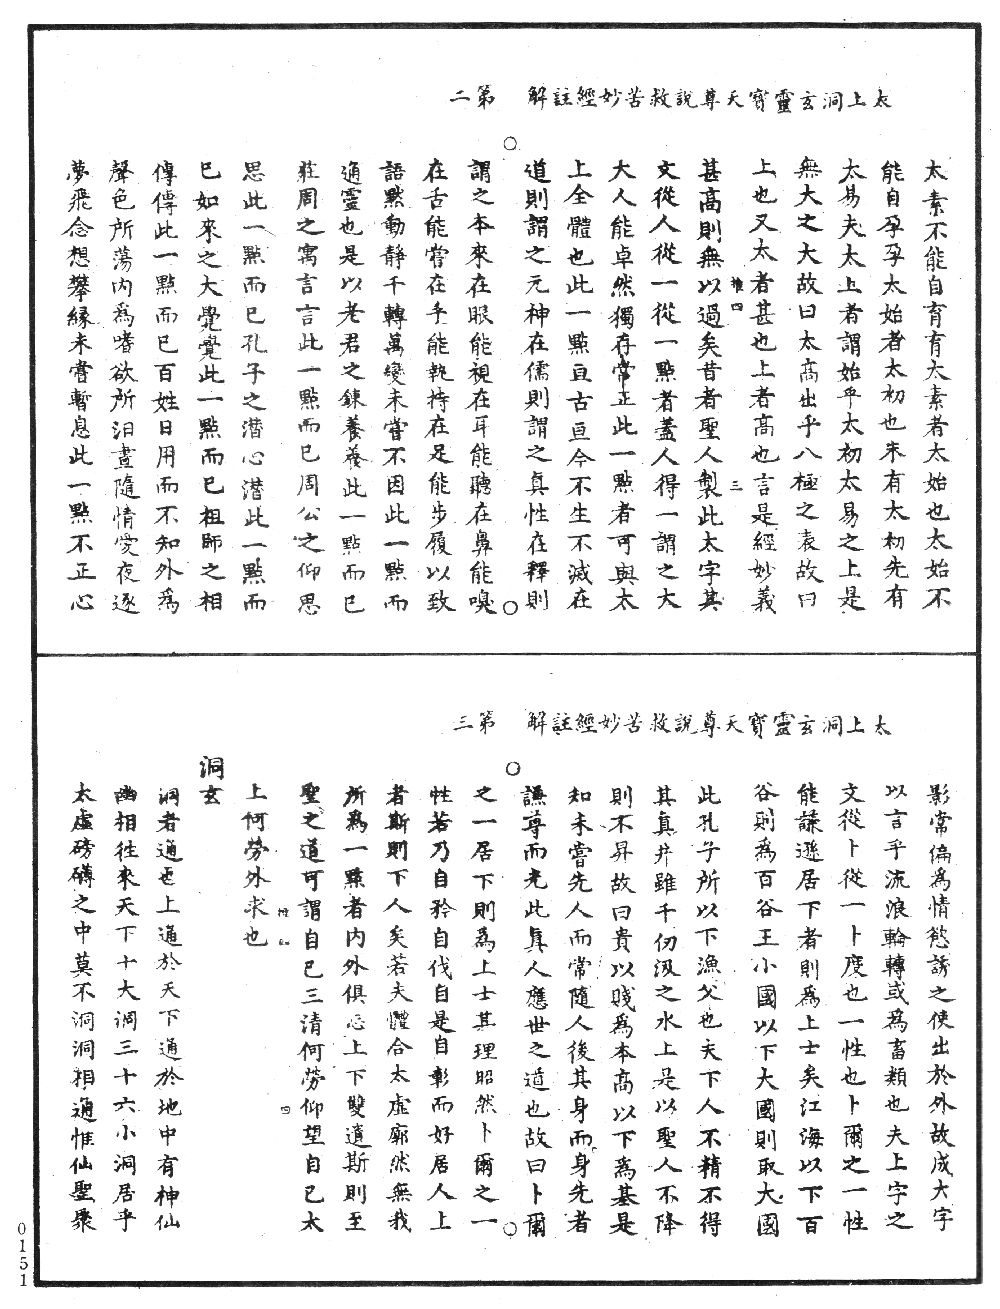 太上洞玄靈寶天尊說救苦妙經註解 第二
太素不能自育育太素者太始也太始不
能自孕孕太始者太初也未有太初先有
太易夫太上者謂始乎太初太易之上是
無大之大故曰太高出乎八極之表故曰
上也又太者甚也上者高也言是經妙義
甚高則無以過矣昔者聖人製此太字其
文從人從一從一點者蓋人得一謂之大
大人能卓然獨存常正此一點者可與太
上全體也此一點亘古亘今不生不滅在
道則謂之元神在儒則謂之真性在釋則
謂之本來在眼能視在耳能聽在鼻能嗅
在舌能嘗在手能執持在足能步履以致
語默動靜千轉萬變未嘗不因此一點而
通靈也是以老君之鍊養養此一點而已
莊周之寓言言此一點而已周公之仰思
思此一點而已孔子之潛心潛此一點而
已如來之大覺覺此一點而已祖師之相
傳傳此一點而已百姓日用而不知外為
聲色所蕩內為嗜欲所汨晝隨情愛夜逐
夢飛念想攀緣未嘗暫息此一點不正心
太上洞玄靈寶天尊說救苦妙經註解 第三
影常偏為情慾誘之使出於外故成大字
以言乎流浪輪轉或為畜類也夫上字之
文從卜從一卜度也一性也卜爾之一性
能謙遜居下者則為上士矣江海以下百
谷則為百谷王小國以下大國則取大國
此孔子所以下漁父也夫下人不精不得
其真井雖千仞汲之水上是以聖人不降
則不昇故曰貴以賤為本高以下為基是
知未嘗先人而常隨人後其身而身先者
謙尊而光此真人應世之道也故曰卜爾
之一居下則為上士其理昭然卜爾之一
性若乃自矜自伐自是自彰而好居人上
者斯則下人矣若夫體合太虛廓然無我
所為一點者內外俱忘上下雙遺斯則至
聖之道可謂自已三清何勞仰望自已太
上何勞外求也
洞玄
洞者通也上通於天下通於地中有神仙
幽相往來天下十大洞三十六小洞居乎
太虛磅礴之中莫不洞洞相通惟仙聖聚
0151